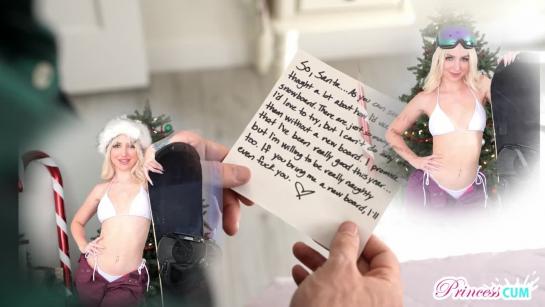 So, Santa... As you can
thought a lot about how I'd
snowboard. There are just so many
I'd love to try, but I can't do
them without a new board. I promise
that I've been really good this year...
but I'm willing to be really naughty
too. If you bring me a new board, I'll
even fuck you.
PRINCESSCUM